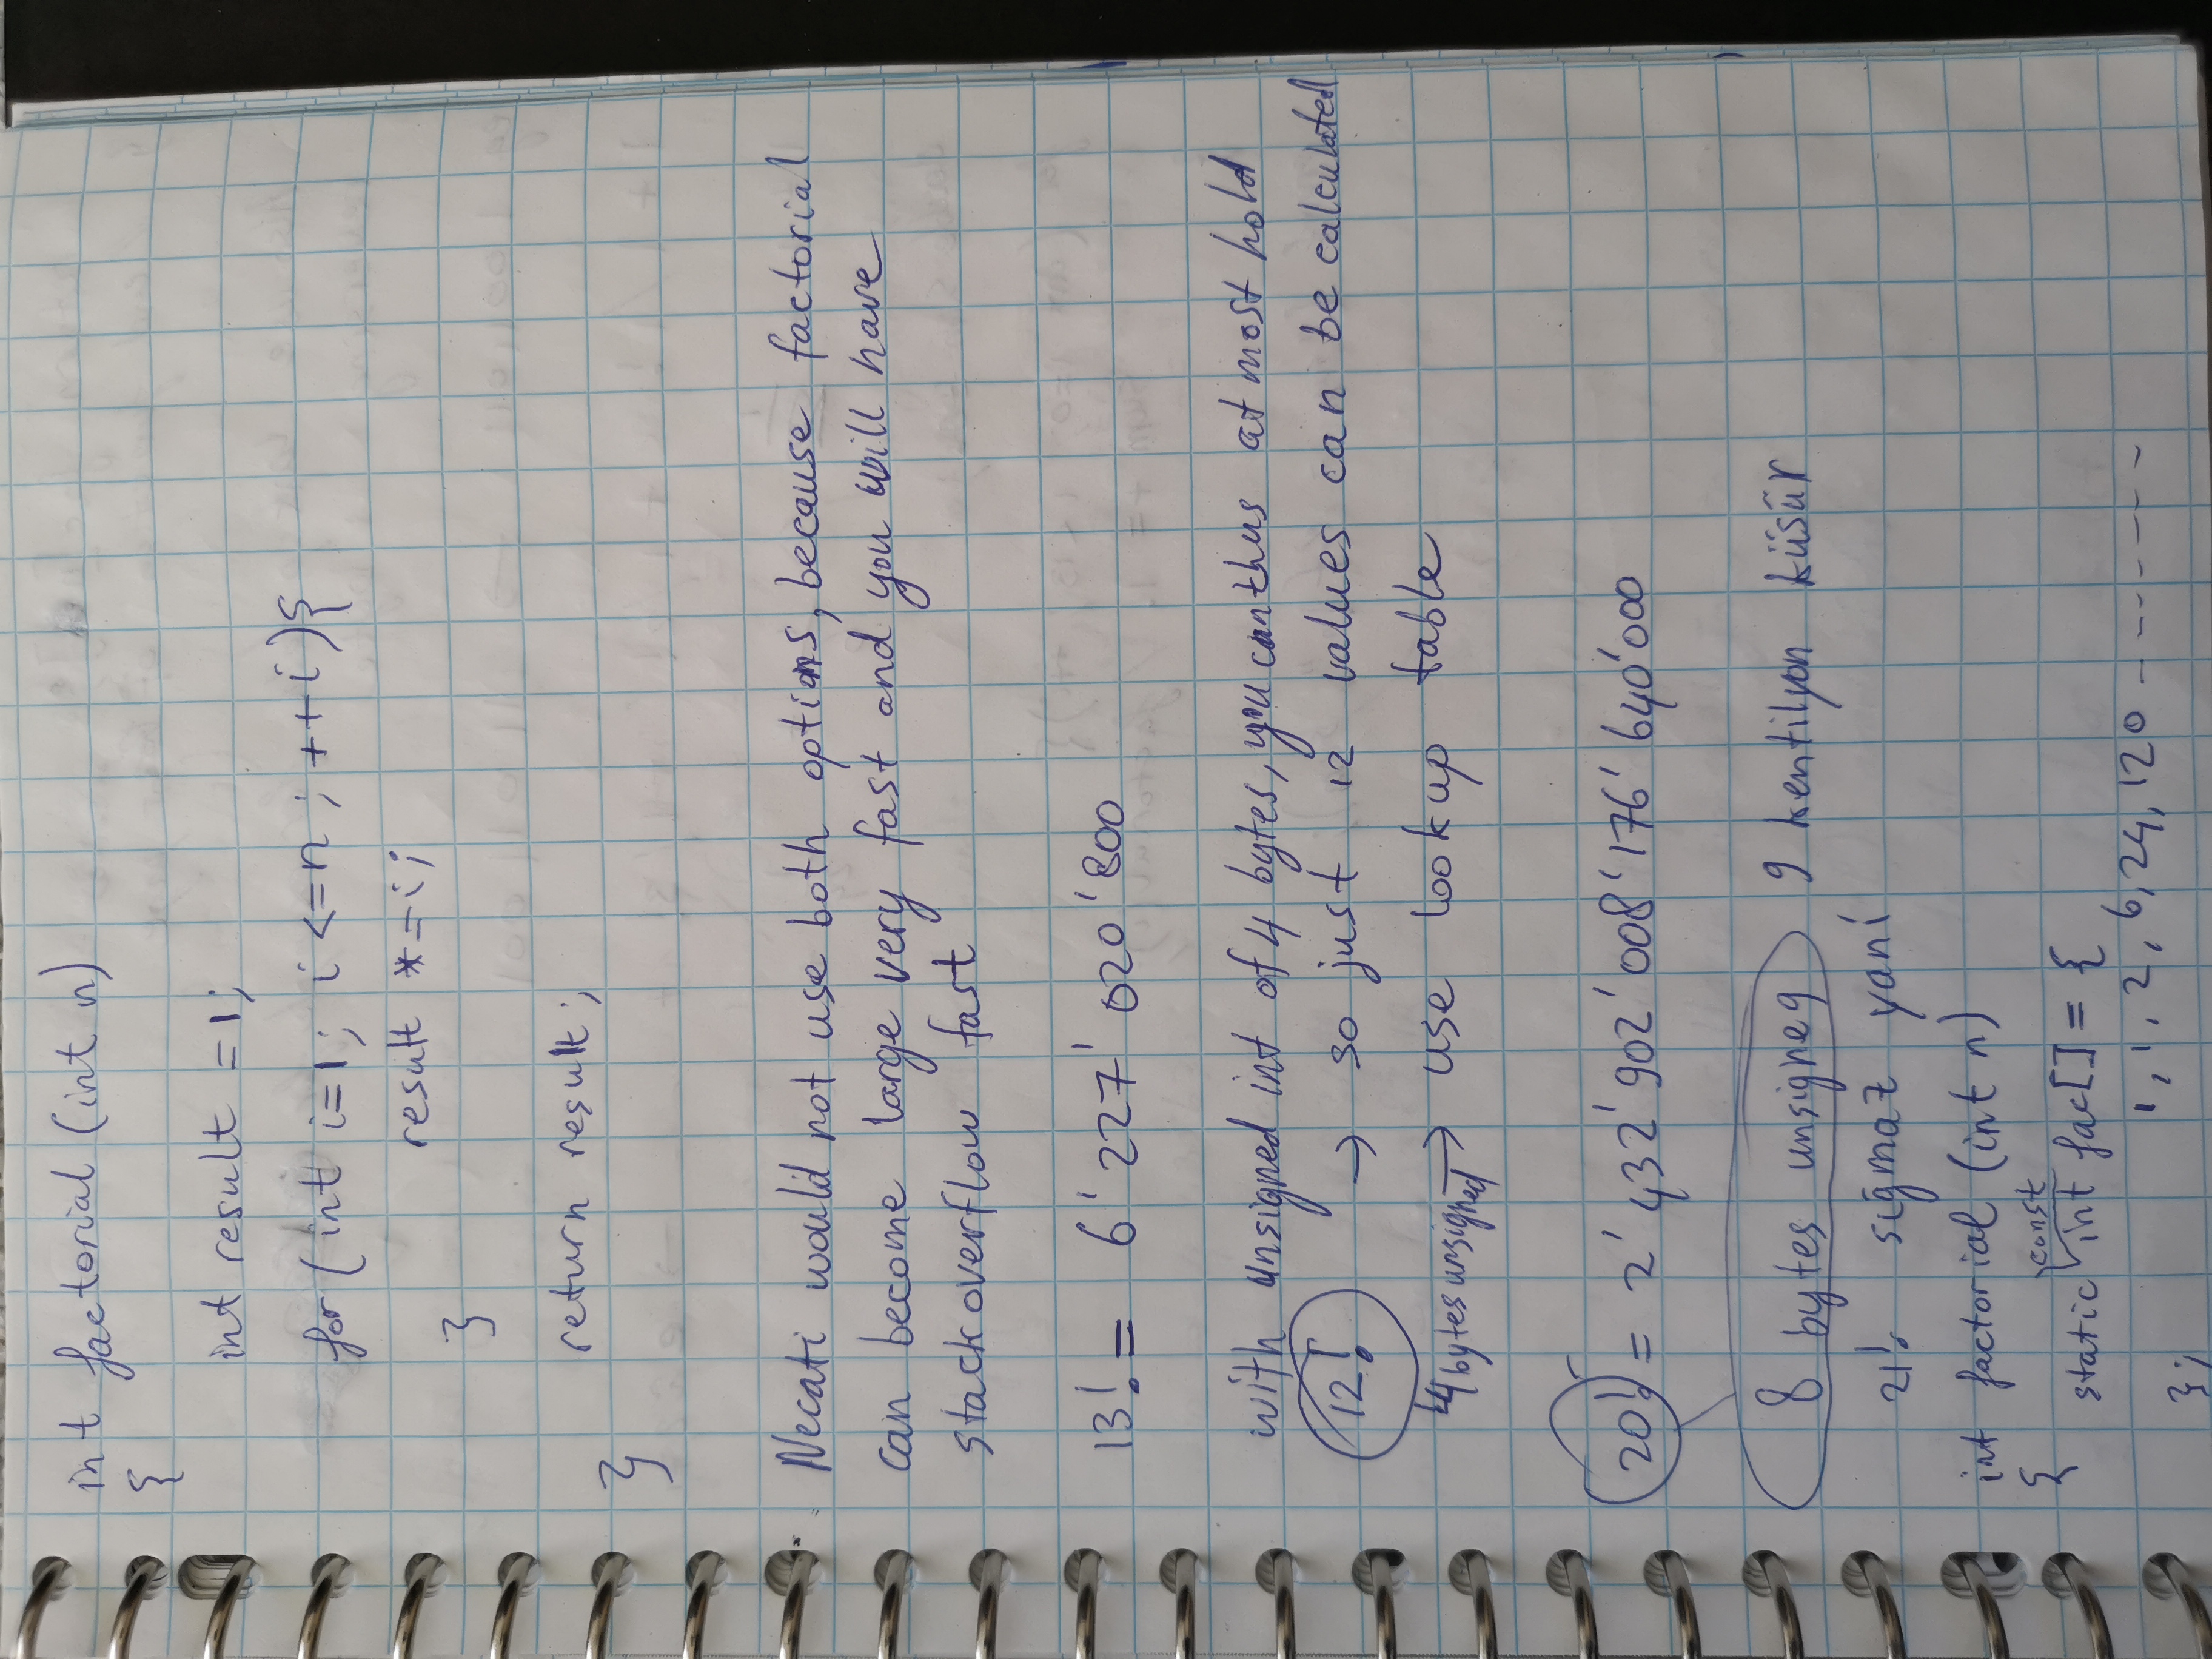 int factorial (int n)
{
int result = 1;
for (int i=1; i <=n ; ++i){
result *=i;
}
return result;
}
Necati would not use both options, because factorial
can become large very fast and you will have
stack overflow fast
13! = 6'227'020'800
with unsigned int of 4 bytes, you can thus at most hold
12! → so just 12 values can be calculated
4 bytes unsigned → use lookup table
20! = 2'432'902'008'176'640'000
8 bytes unsigneg 9 kentilyon küsür
21! sığmaz yani
int factorial (int n)
{
const
static int fac[] = {
1, 1, 2, 6, 24, 120 - - - - - - -
};